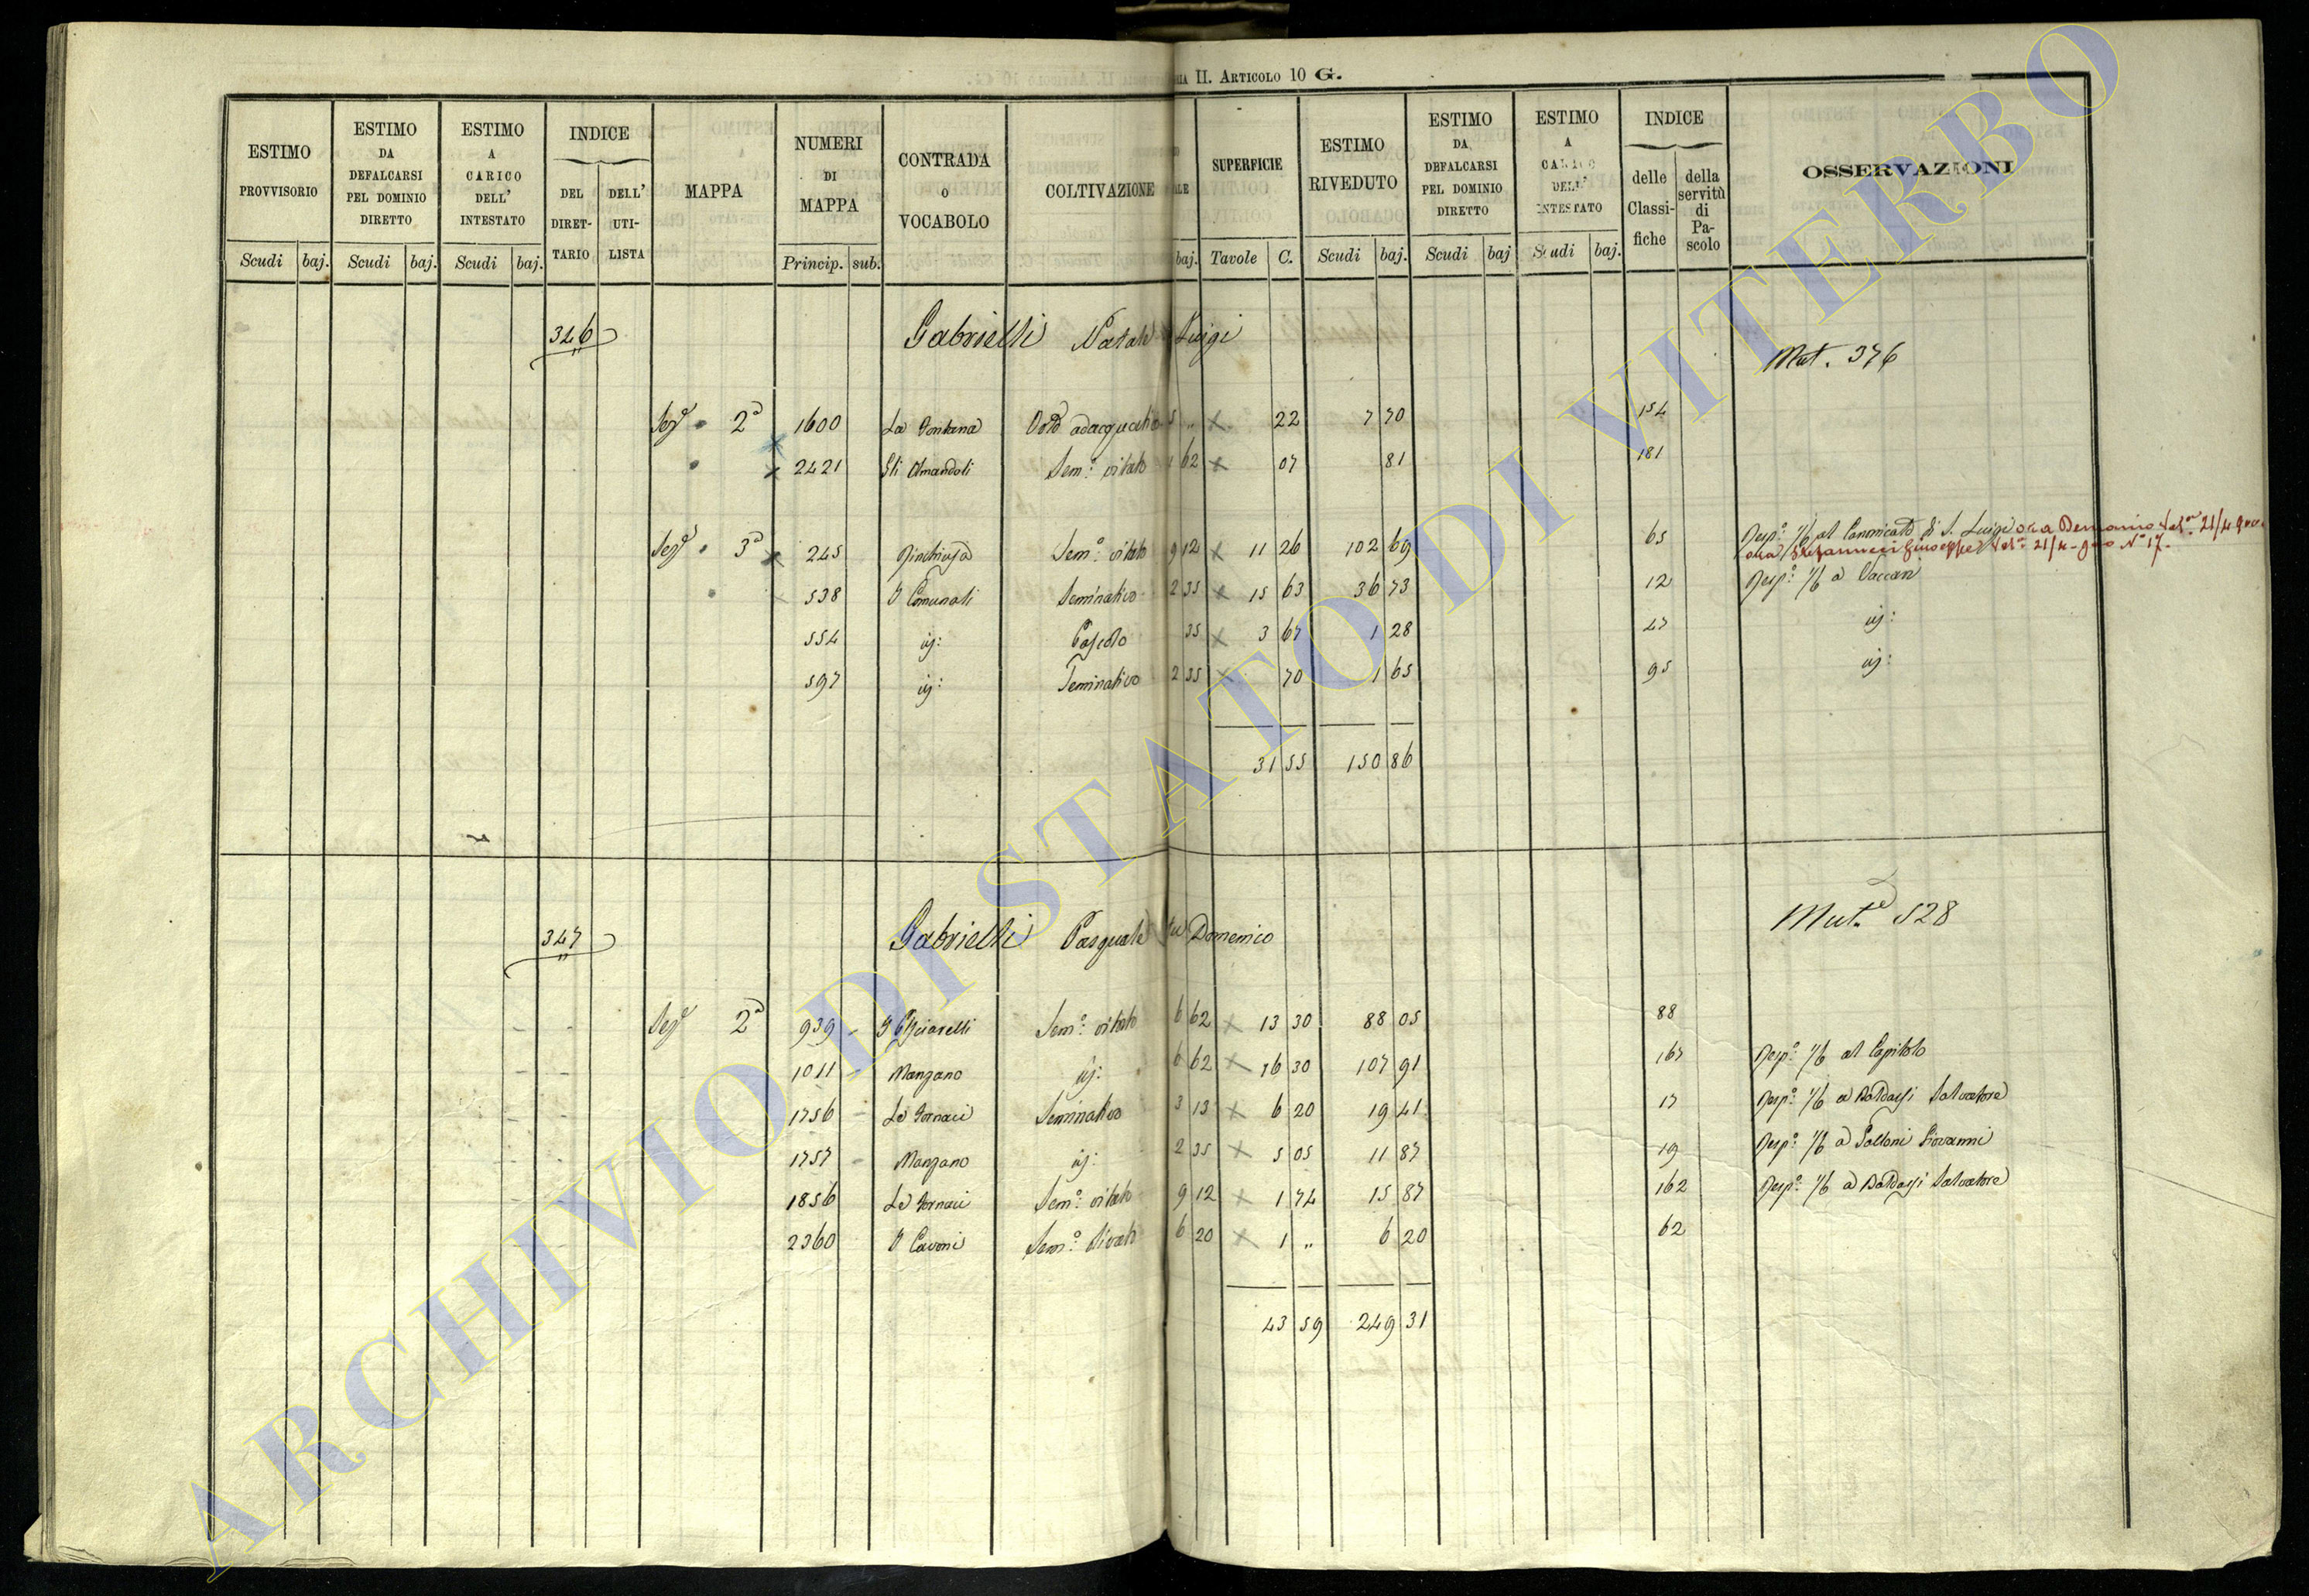 II. Articolo 10 G.
ESTIMO PROVVISORIO Scudi baj.
ESTIMO DA DEFALCARSI PEL DOMINIO DIRETTO Scudi baj.
ESTIMO A CARICO DELL' INTESTATO Scudi baj.
INDICE DEL DIRETTARIO DELL' UTILISTA
MAPPA
NUMERI DI MAPPA Princip. sub.
CONTRADA O VOCABOLO
COLTIVAZIONE
baj.
SUPERFICIE Tavole C.
ESTIMO RIVEDUTO Scudi baj.
ESTIMO DA DEFALCARSI PEL DOMINIO DIRETTO Scudi baj
ESTIMO A CARICO DELL' INTESTATO Scudi baj.
INDICE delle Classifiche della servitù di Pascolo
OSSERVAZIONI
346 Gabrielli Natale Luigi
Mat. 376
Sezᵉ 2ª 1600 La Fontana Orto adacquativo 5 „ 22 7 70 154
2421 Gli Almandoli Sem.º vitato 62 07 81 181
Sezᵉ 3ª 245 Sem.º vitato 9 12 11 26 102 69 65 Resp.º 1/6 al Canonicato di S. Luigi ora Demanio 21/4
ora Giuseppe 21/4 Nº 17.
538 I Comunali Seminativo 2 35 15 63 36 73 12 Resp.º 1/6 a Vaccari
554 id: Pascolo 35 3 67 1 28 47 id:
597 id: Seminativo 2 35 70 1 65 95 id:
31 55 150 86
347 Gabrielli Pasquale fu Domenico
Mut.ᵉ 528
Sezᵉ 2ª 939 Sem.º vitato 6 62 13 30 88 05 88
1011 Manzano id: 6 62 16 30 107 91 167 Resp.º 1/6 al Capitolo
1756 Le Fornaci Seminativo 3 13 6 20 19 41 17 Resp.º 1/6 a Baldassi Salvatore
1757 Manzano id: 2 35 5 05 11 87 19 Resp.º 1/6 a Giovanni
1856 Le Fornaci Sem.º vitato 9 12 1 74 15 87 162 Resp.º 1/6 a Baldassi Salvatore
2360 I Cavoni Sem.º olivato 6 20 1 „ 6 20 62
43 59 249 31
ARCHIVIO DI STATO DI VITERBO